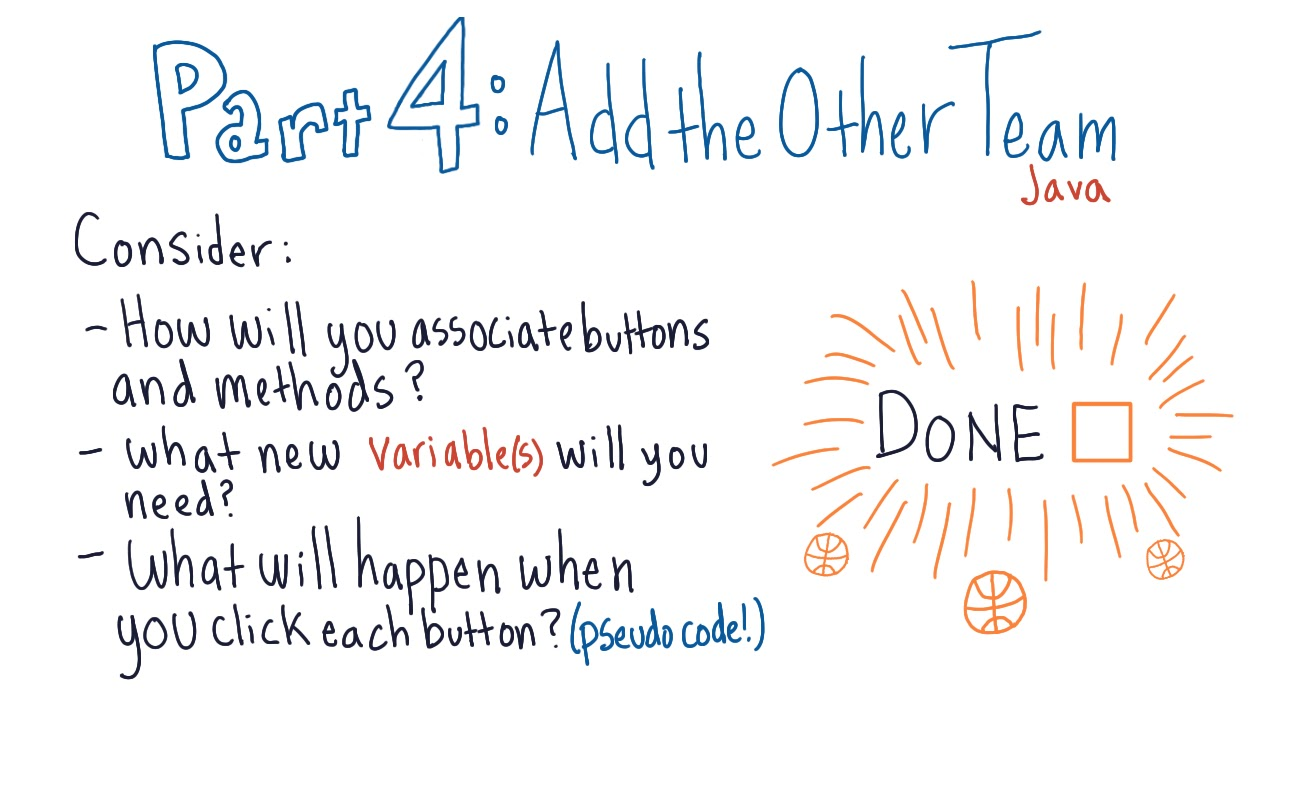 Part 4: Add the Other Team
Java
Consider:
- How will you associate buttons
and methods?
- what new variable(s) will you
need?
- What will happen when
you click each button? (pseudo code!)
DONE